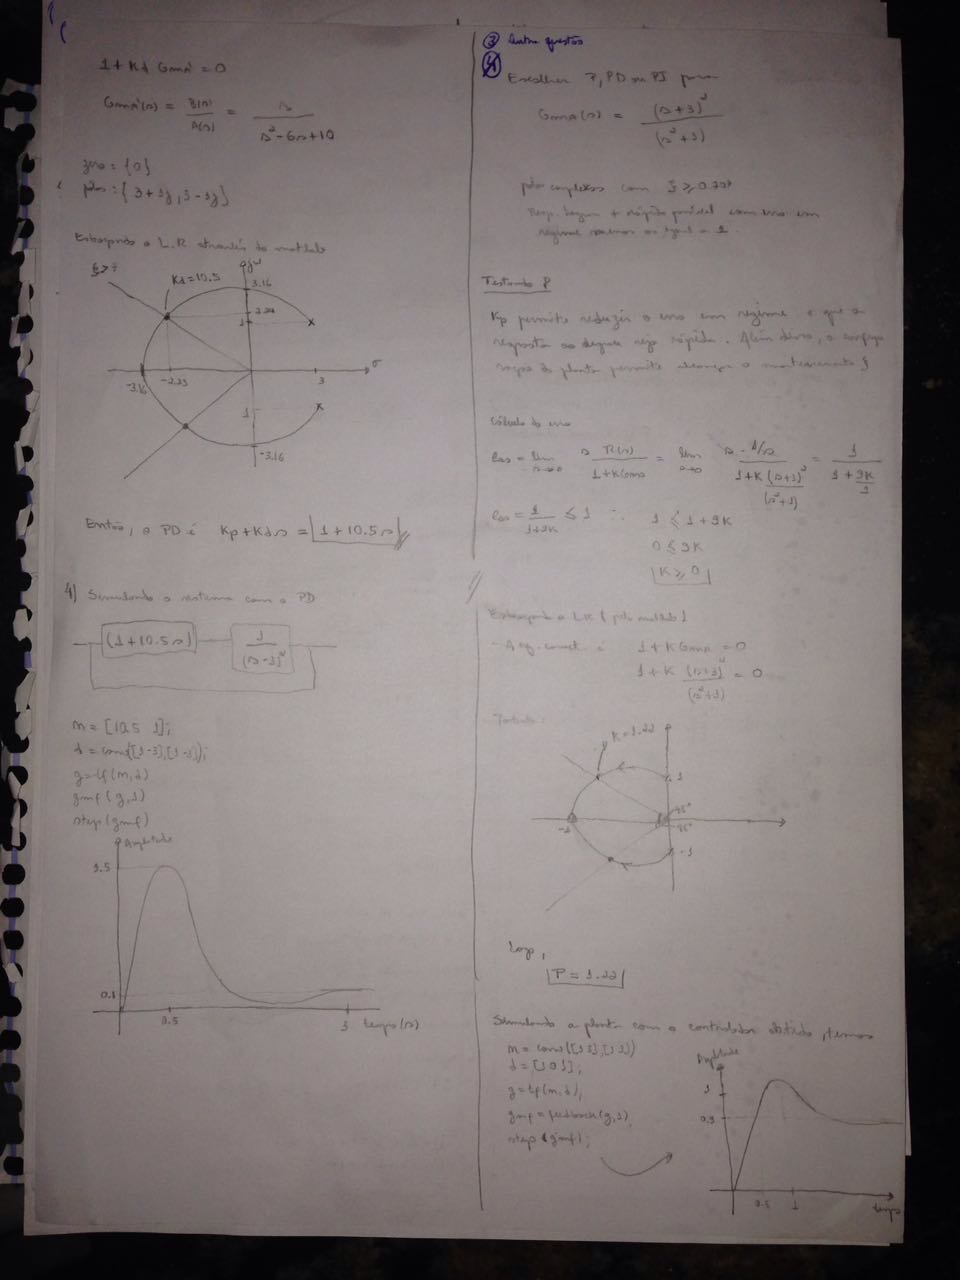 1 + Kd Gma' = 0
Gma'(s) = B(s)/A(s) = s/(s² - 6s + 10)
zero = {0}
polos: {3 + 1j, 3 - 1j}
Esboçando o L.R. através do matlab
Kd = 10.5
jω
3.16
2.24
1
σ
-3.16
-2.23
3
1
-3.16
Então, o PD é Kp + Kds = 1 + 10.5s
4) Simulando o sistema com o PD
(1 + 10.5s)
n = [10.5 1];
g = tf(n,d)
gmf(g,1)
step(gmf)
Amplitude
1.5
0.1
0.5
tempo(s)
③ Outra questão
Escolher P, PD ou PI para
Gma(s) = (s+3)²/(s²+1)
polos complexos com ξ ≥ 0.707
Resp. degrau + rápida possível com erro em
regime menor ou igual a 1.
Testando P
Kp permite reduzir o erro em regime e que a
resposta ao degrau seja rápida. Além disso, a
da planta permite
Cálculo do erro
ess = lim s→0 s R(s)/(1 + K Gma) = lim s→0 s · 1/s / (1 + K (s+3)²/(s²+1)) = 1/(1 + 9K/1)
ess = 1/(1+9K) ≤ 1 ∴ 1 ≤ 1 + 9K
0 ≤ 9K
K ≥ 0
Esboçando o LR (pelo matlab)
- A eq. caract. é 1 + K Gma = 0
1 + K (s+3)²/(s²+1) = 0
K = 1.22
1
45°
45°
-1
Logo,
P = 1.22
Simulando a planta com o controlador obtido, temos
d = [1 0 1];
g = tf(n,d);
gmf = feedback(g,1)
step(gmf);
Amplitude
1
0.9
0.5
1
tempo